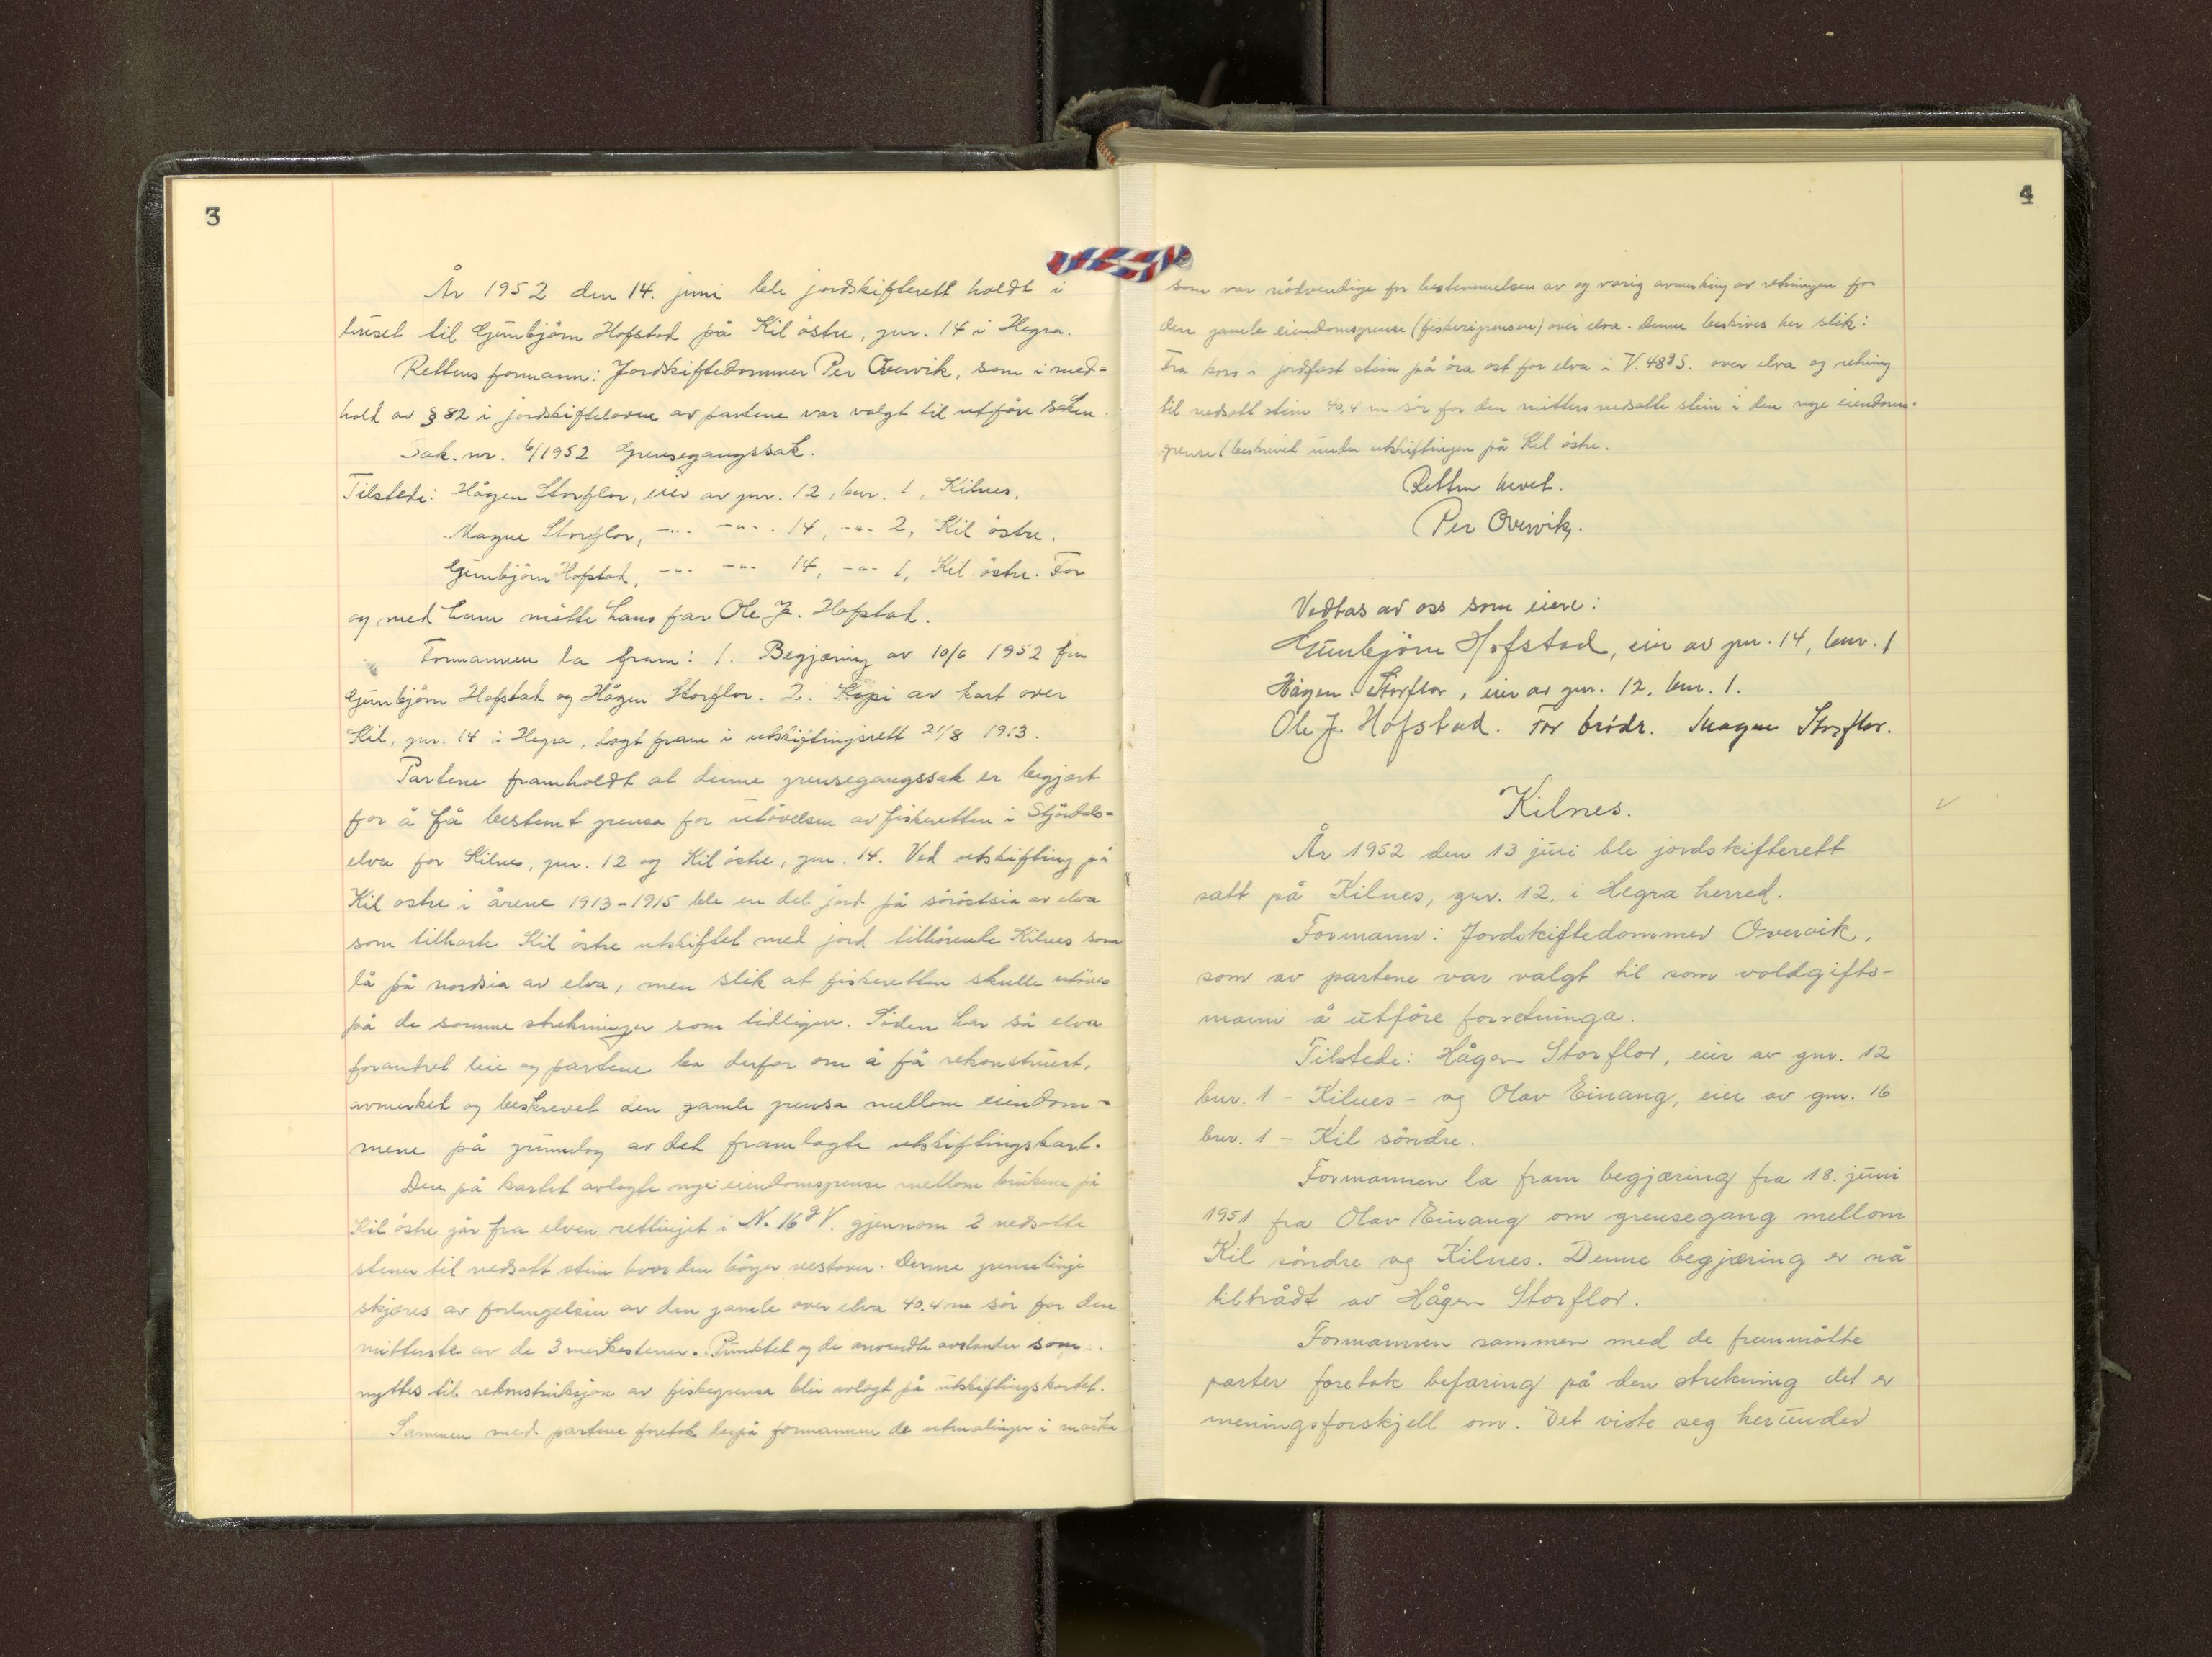 3
År 1952 den 14. juni ble jordskifterett holdt i
huset til Gunbjörn Hofstad på Kil östre, gnr. 14 i Hegra.
Rettens formann: Jordskiftedommer Per Overvik, som i med-
hold av § 82 i jordskifteloven av partene var valgt til utföre saken.
Sak. nr. 6/1952 Grensegangssak.
Tilstede: Hågen Storflor, eier av gnr. 12, bnr. 1, Kilnes.
Magne Storflor, -"- -"- 14, -"- 2, Kil östre.
Gunbjörn Hofstad, -"- -"- 14, -"- 1, Kil östre. For
og med ham mötte hans far Ole J. Hofstad.
Formannen la fram: 1. Begjæring av 10/6 1952 fra
Gunbjörn Hofstad og Hågen Storflor. 2. Kopi av kart over
Kil, gnr. 14 i Hegra, lagt fram i utskiftingsrett 21/8 1913.
Partene framholdt at denne grensegangssak er begjært
for å få bestemt grensa for utövelsen av fiskeretten i Stjördals-
elva for Kilnes, gnr. 12 og Kil östre, gnr. 14. Ved utskifting på
Kil östre i årene 1913-1915 ble en del jord på söröstsia av elva
som tilhørte Kil östre utskiftet med jord tilhörende Kilnes som
lå på nordsia av elva, men slik at fiskeretten skulle utöves
på de samme strekninger som tidligere. Siden har så elva
forandret leie og partene ba derfor om å få rekonstruert,
avmerket og beskrevet den gamle grensa mellom eiendom-
mene på grunnlag av det framlagte utskiftingskart.
Den på kartet avlagte nye eiendomsgrense mellom brukene på
Kil östre går fra elven rettlinjet i N. 16 g V. gjennom 2 nedsatte
stener til nedsatt stein hvor den böyer vestover. Denne grenselinje
skjæres av forlengelsen av den gamle over elva 40,4 m sör for den
mitterste av de 3 merkestener. Punktet og de anvendte avstander som
nyttes til rekonstruksjon av fiskegrensa blir avlagt på utskiftingskartet.
Sammen med partene foretok derpå formannen de utmålinger i marka
4
som var nödvendige for bestemmelsen av og varig avmerking av retningen for
den gamle eiendomsgrense (fiskerigrensen) over elva. Denne beskrives her slik:
Fra kors i jordfast stein på öra ost for elva i V. 48 g S. over elva og retning
til nedsatt stein 40,4 m sör for den mitterse nedsatte stein i den nye eiendoms-
grense (beskrevet under utskiftingen på Kil östre.
Retten hevet.
Per Overvik.
Vedtas av oss som eiere:
Gunbjörn Hofstad, eier av gnr. 14, bnr. 1
Hågen Storflor, eier av gnr. 12. bnr. 1.
Ole J. Hofstad. For brödr. Magne Storflor.
Kilnes.
År 1952 den 13 juni ble jordskifterett
satt på Kilnes, gnr. 12. i Hegra herred.
Formann: Jordskiftedommer Overvik,
som av partene var valgt til som voldgifts-
mann å utföre forretninga.
Tilstede: Hågen Storflor, eier av gnr. 12
bnr. 1 - Kilnes - og Olav Einang, eier av gnr. 16
bnr. 1 - Kil söndre.
Formannen la fram begjæring fra 18. juni
1951 fra Olav Einang om grensegang mellom
Kil söndre og Kilnes. Denne begjæring er nå
tiltrådt av Hågen Storflor.
Formannen sammen med de fremmötte
parter foretok befaring på den strekning det er
meningsforskjell om. Det viste seg herunder